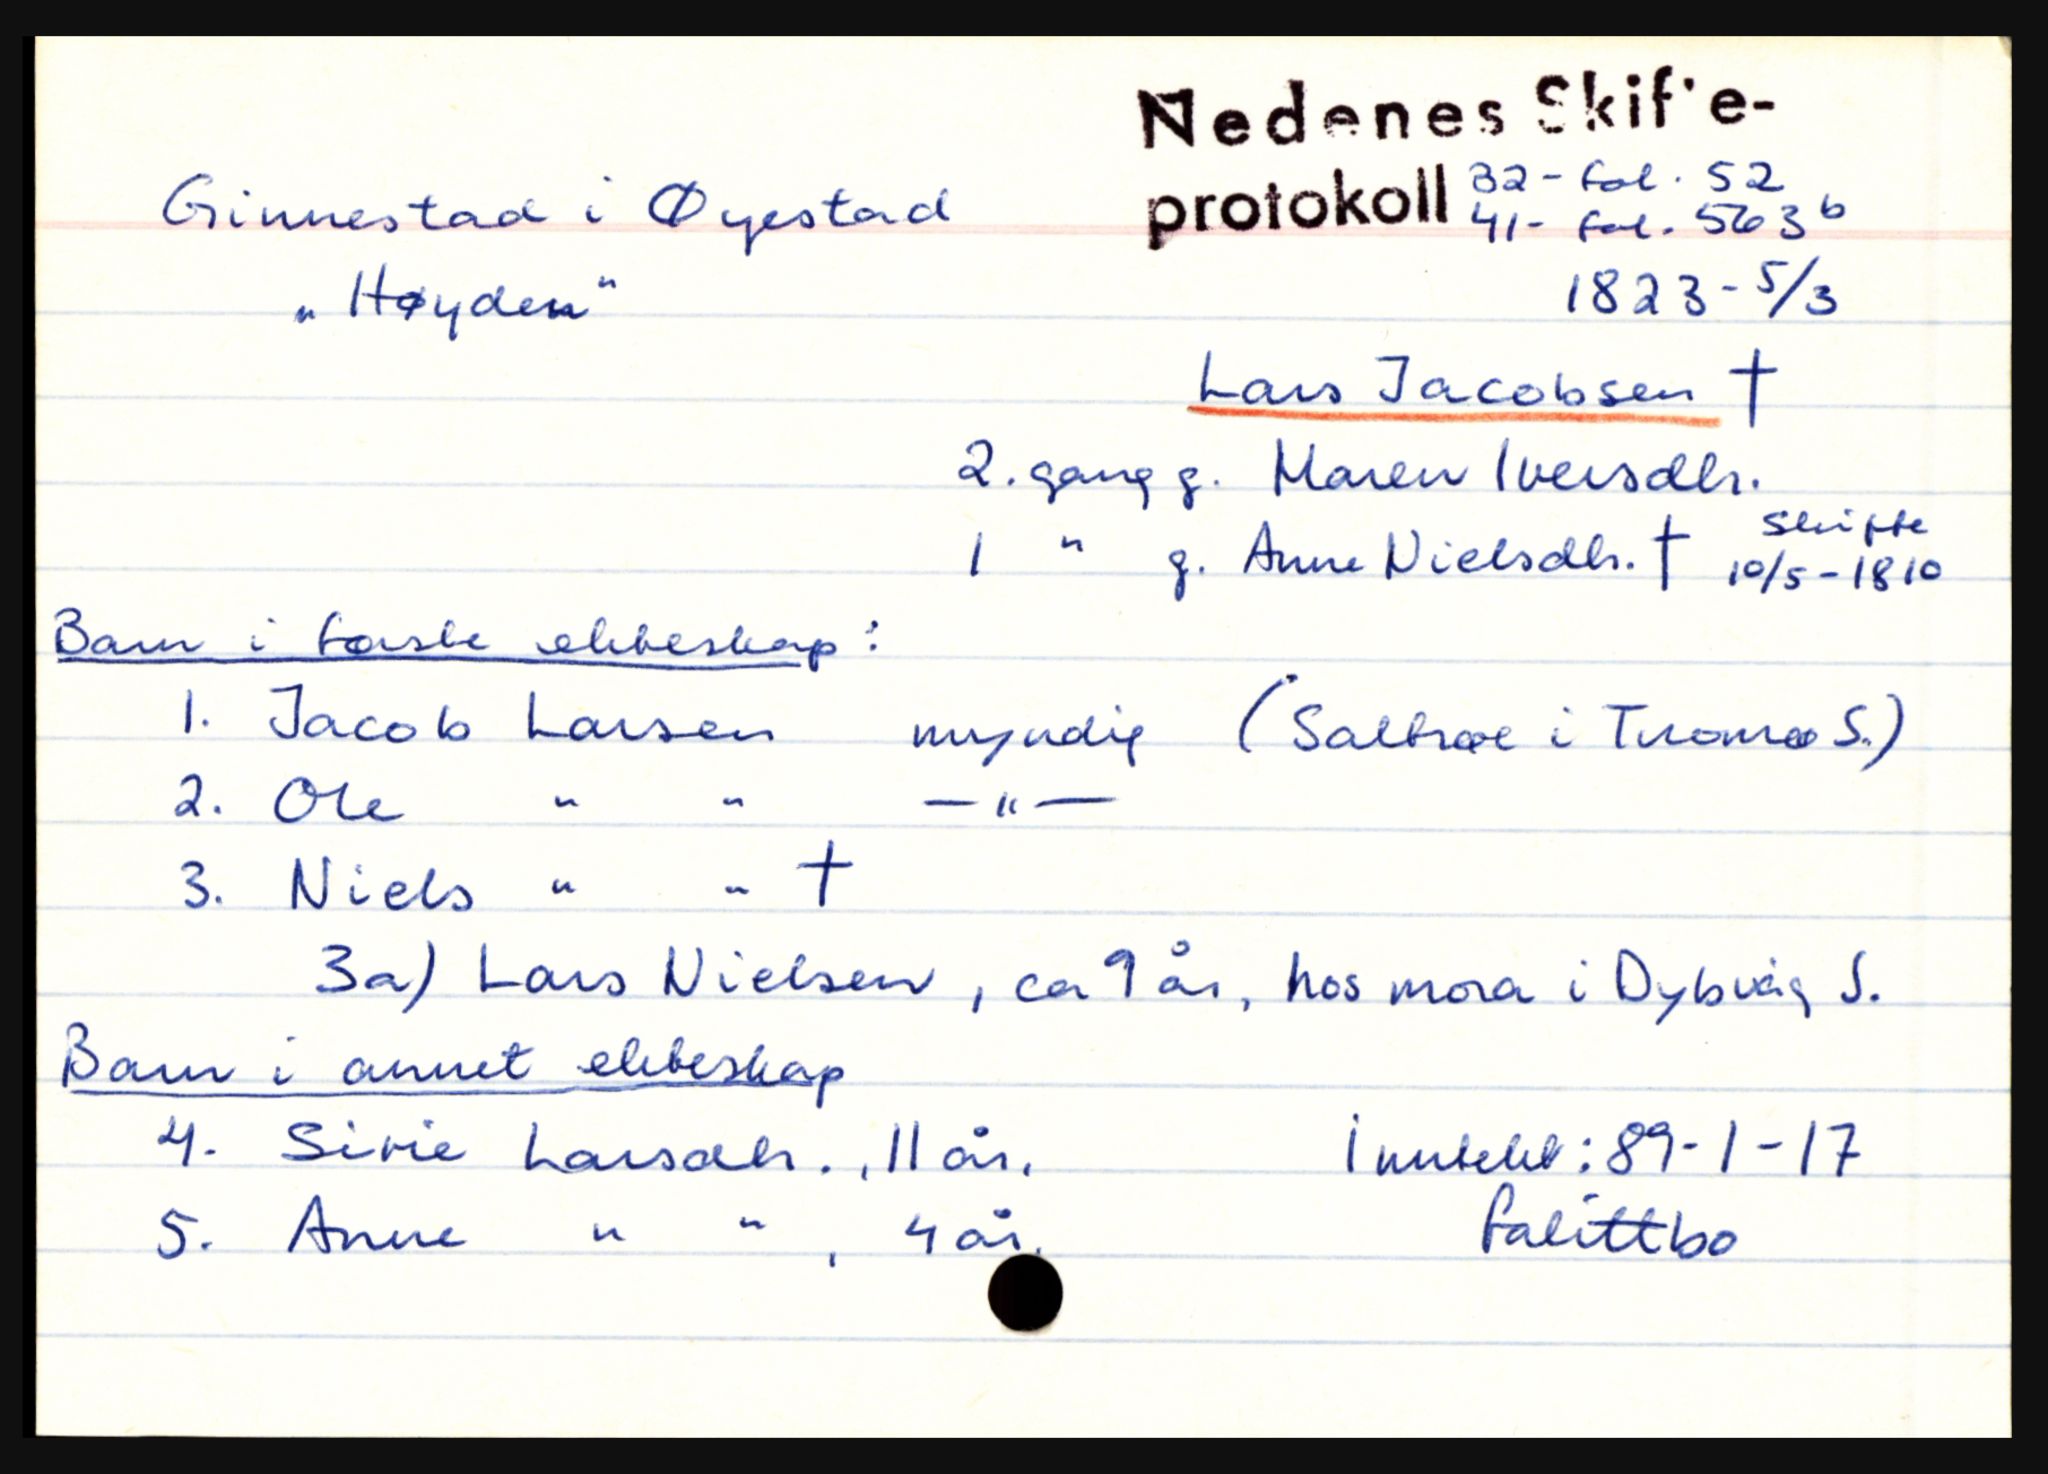 Nedenes Skif'e-
protokoll 32- fol. 52
41- fol. 563 b
Ginnestad i Øyestad
„Høyden"
1823 - 5/3
Lars Jacobsen †
2. gang g. Maren Iversdtr.
1 " g. Anne Nielsdtr. † Skifte 10/5 - 1810
Barn i første ekteskap:
1. Jacob Larsen myndig (Saltrøe i Tromø S.)
2. Ole " " — " —
3. Niels " " †
3a) Lars Nielsen, ca 9 år, hos mora i Dybvåg S.
Barn i annet ekteskap
4. Sirie Larsdtr., 11 år. Inntekt: 89-1-17
5. Anne " ", 4 år. fallittbo